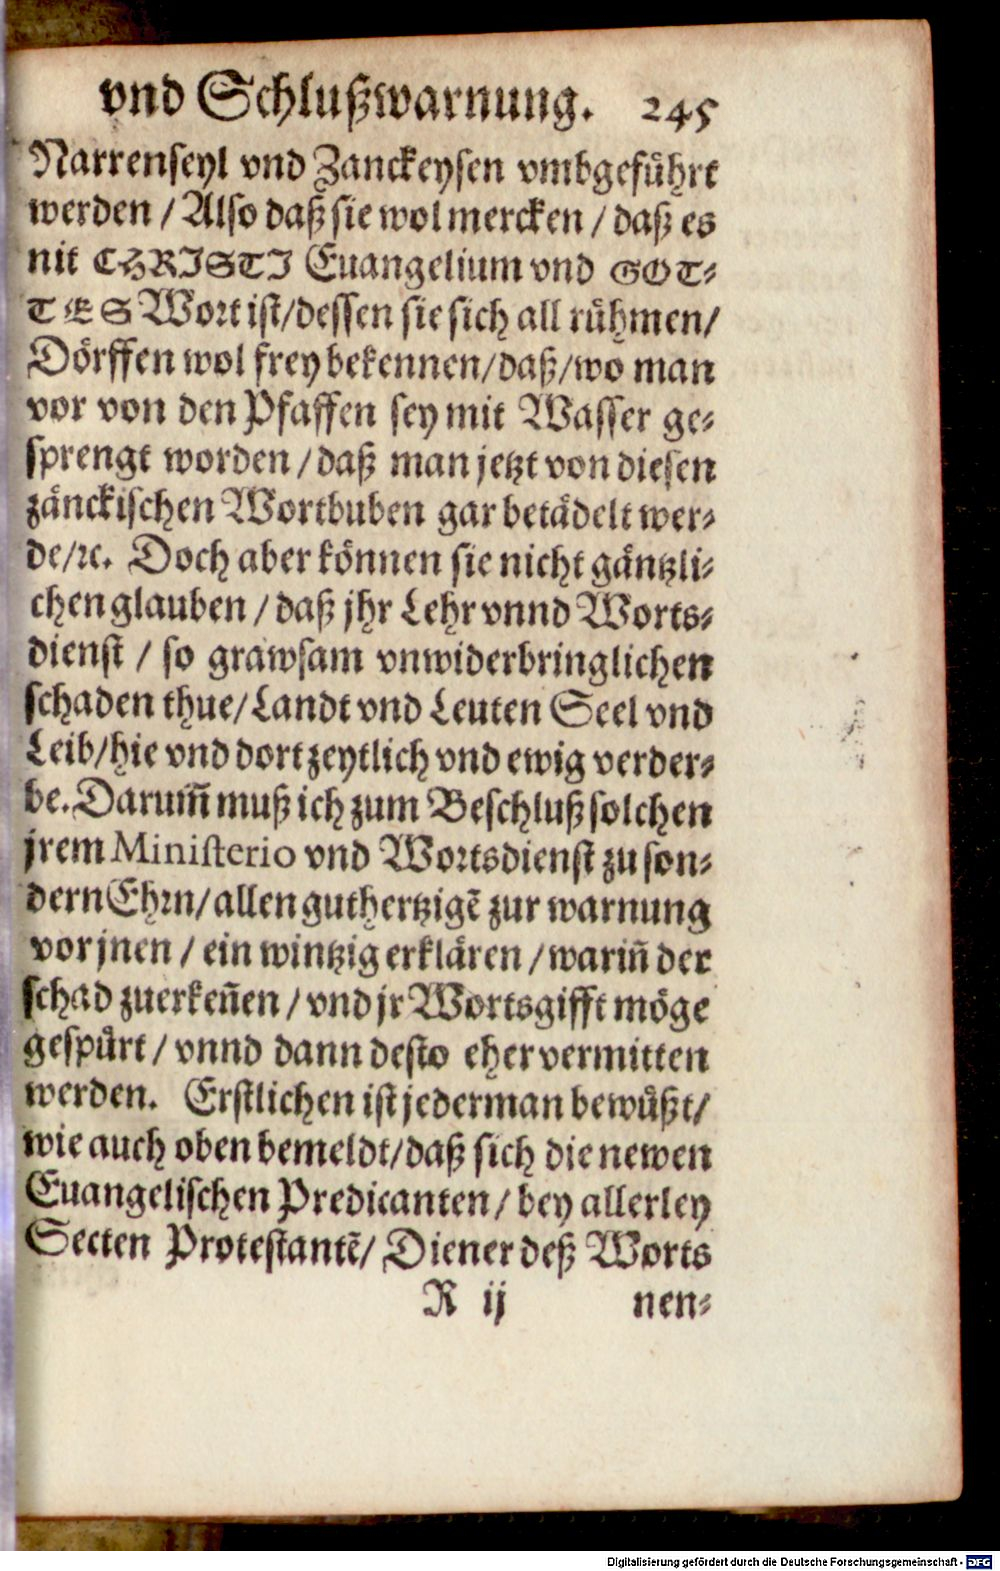 vnd Schlußwarnung. 245
Narrenseyl vnd Zanckeysen vmbgeführt
werden / Also daß sie wol mercken / daß es
nit CHRISTI Euangelium vnd GOT-
TES Wort ist/dessen sie sich all rühmen/
Dörffen wol frey bekennen/daß/wo man
vor von den Pfaffen sey mit Wasser ge-
sprengt worden / daß man jetzt von diesen
zänckischen Wortbuben gar betädelt wer-
de/ꝛc. Doch aber können sie nicht gäntzli-
chen glauben / daß jhr Lehr vnnd Worts-
dienst / so grawsam vnwiderbringlichen
schaden thue/Landt vnd Leuten Seel vnd
Leib/hie vnd dort zeytlich vnd ewig verder-
be. Darum̃ muß ich zum Beschluß solchen
jrem Ministerio vnd Wortsdienst zu son-
dern Ehrn/ allen guthertzigẽ zur warnung
vor jnen / ein wintzig erklären / wariñ der
schad zuerkeñen / vnd jr Wortsgifft möge
gespürt / vnnd dann desto eher vermitten
werden. Erstlichen ist jederman bewüßt/
wie auch oben bemeldt/daß sich die newen
Euangelischen Predicanten / bey allerley
Secten Protestantẽ/ Diener deß Worts
R ij nen-
Digitalisierung gefördert durch die Deutsche Forschungsgemeinschaft - DFG